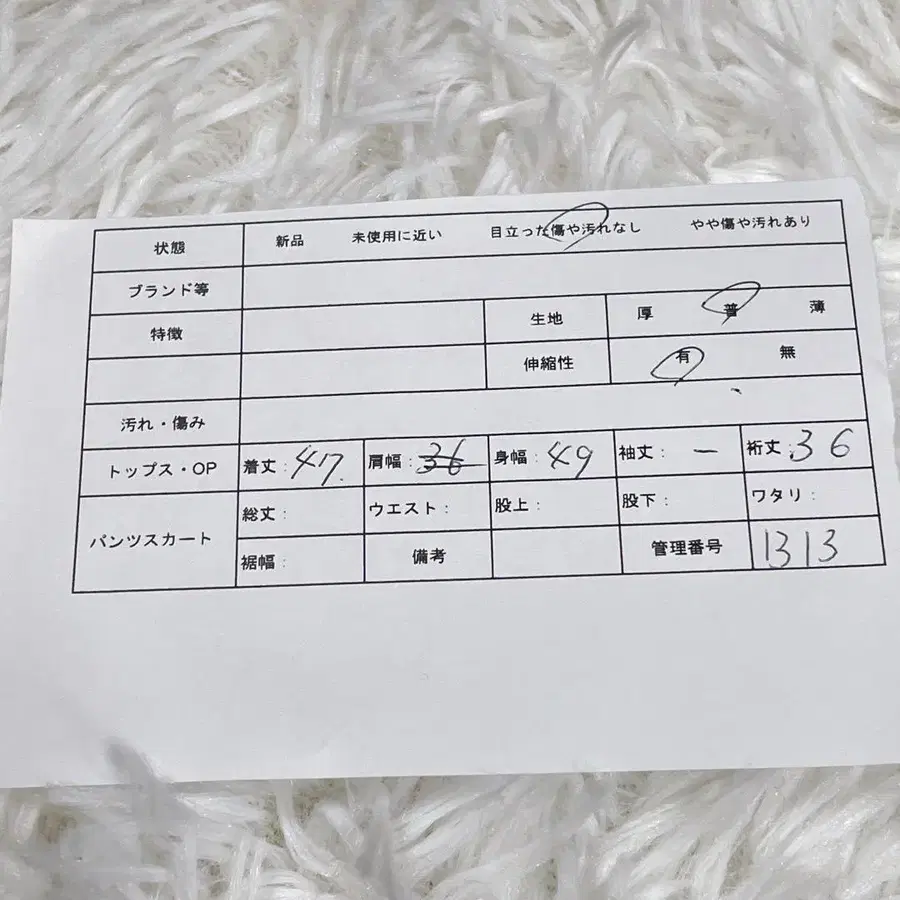 状態 新品 未使用に近い 目立った傷や汚れなし やや傷や汚れあり
ブランド等
特徴 生地 厚 普 薄
伸縮性 有 無
汚れ・傷み
トップス・OP 着丈: 47. 肩幅: 36 身幅: 49 袖丈: ー 裄丈: 36
パンツスカート 総丈: ウエスト: 股上: 股下: ワタリ:
裾幅: 備考 管理番号 1313